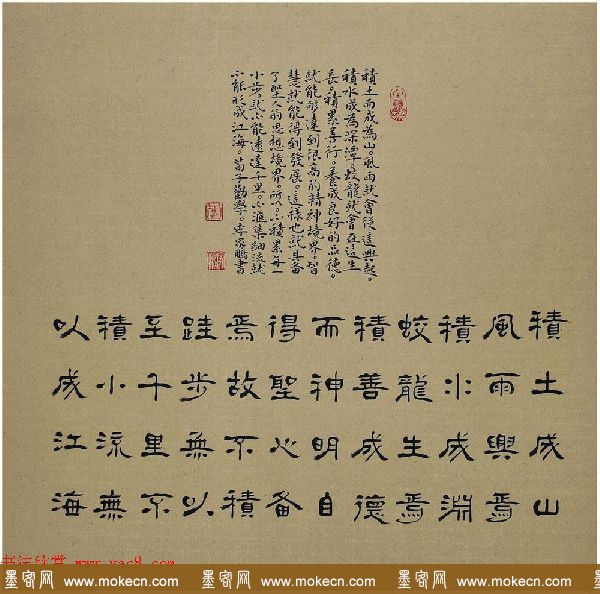 積土而成為山。風雨就會從這興起。
積水成為深潭。蛟龍就會在這生
長。積累善行。養成良好的品德。
就能夠達到很高的精神境界。智
慧就能得到發展。這樣也就具备
了聖人的思想境界。所以。不積累每一
小步。就不能遠達千里。不滙集細流就
不能形成江海。荀子勸學。李家鵬書
積土成山
風雨興焉
積水成淵
蛟龍生焉
積善成德
而神明自
得聖心备
焉故不積
跬步無以
至千里不
積小流無
以成江海
书法欣赏 www.yac8.com
墨客网 www.mokecn.com 墨客网 www.mokecn.com 墨客网 www.mokecn.com